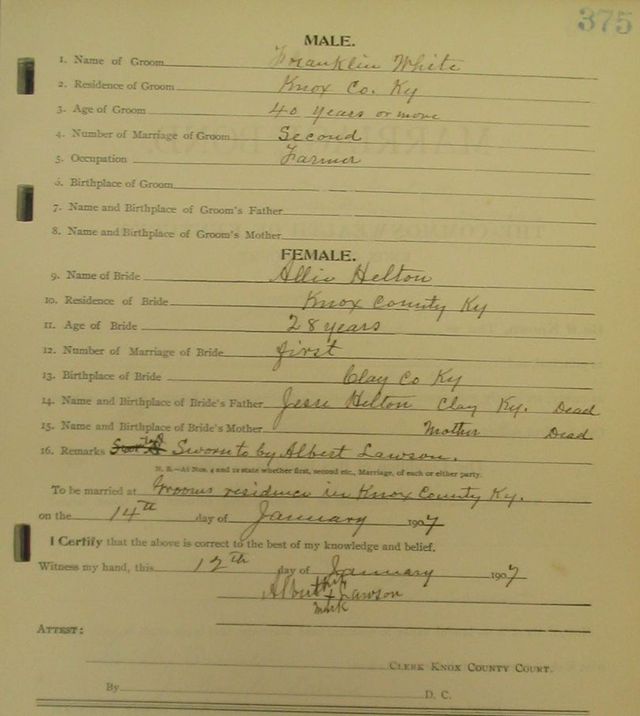 375
MALE.
1. Name of Groom Franklin White
2. Residence of Groom Knox Co. Ky
3. Age of Groom 40 years or more
4. Number of Marriage of Groom Second
5. Occupation Farmer
6. Birthplace of Groom
7. Name and Birthplace of Groom's Father
8. Name and Birthplace of Groom's Mother
FEMALE.
9. Name of Bride Allie Helton
10. Residence of Bride Knox County Ky
11. Age of Bride 28 years
12. Number of Marriage of Bride first
13. Birthplace of Bride Clay Co Ky
14. Name and Birthplace of Bride's Father Jesse Helton Clay Ky. Dead
15. Name and Birthplace of Bride's Mother Mother Dead
16. Remarks Sworn to by Albert Lawson.
N. B.—At Nos. 4 and 12 state whether first, second etc., Marriage, of each or either party.
To be married at Grooms residence in Knox County Ky.
on the 14th day of January 1907
I Certify that the above is correct to the best of my knowledge and belief.
Witness my hand, this 12th day of January 1907
his
Albert + Lawson
mark
ATTEST:
CLERK KNOX COUNTY COURT.
By D. C.